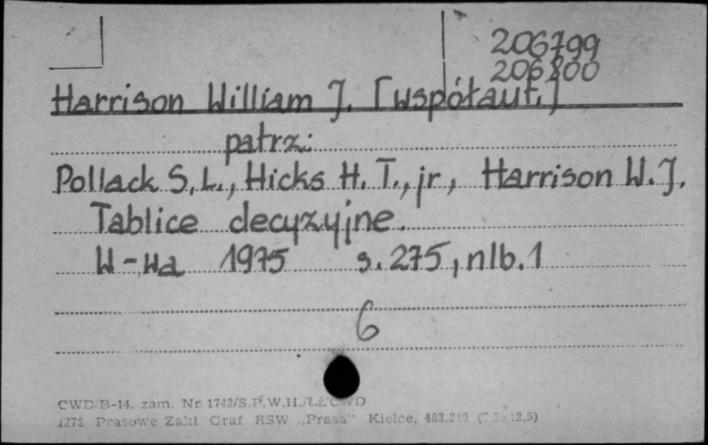 206799
206800
Harrison William J. [współaut.]
patrz:
Pollack S.L., Hicks H.T., jr, Harrison W.J.
Tablice decyzyjne.
W-wa 1975 s. 275, nlb. 1
6
CWD/B-14. zam. Nr 1743/S.P.W.H.
1272 Prasowe Zakł Graf RSW „Prasa” Kielce, 483.